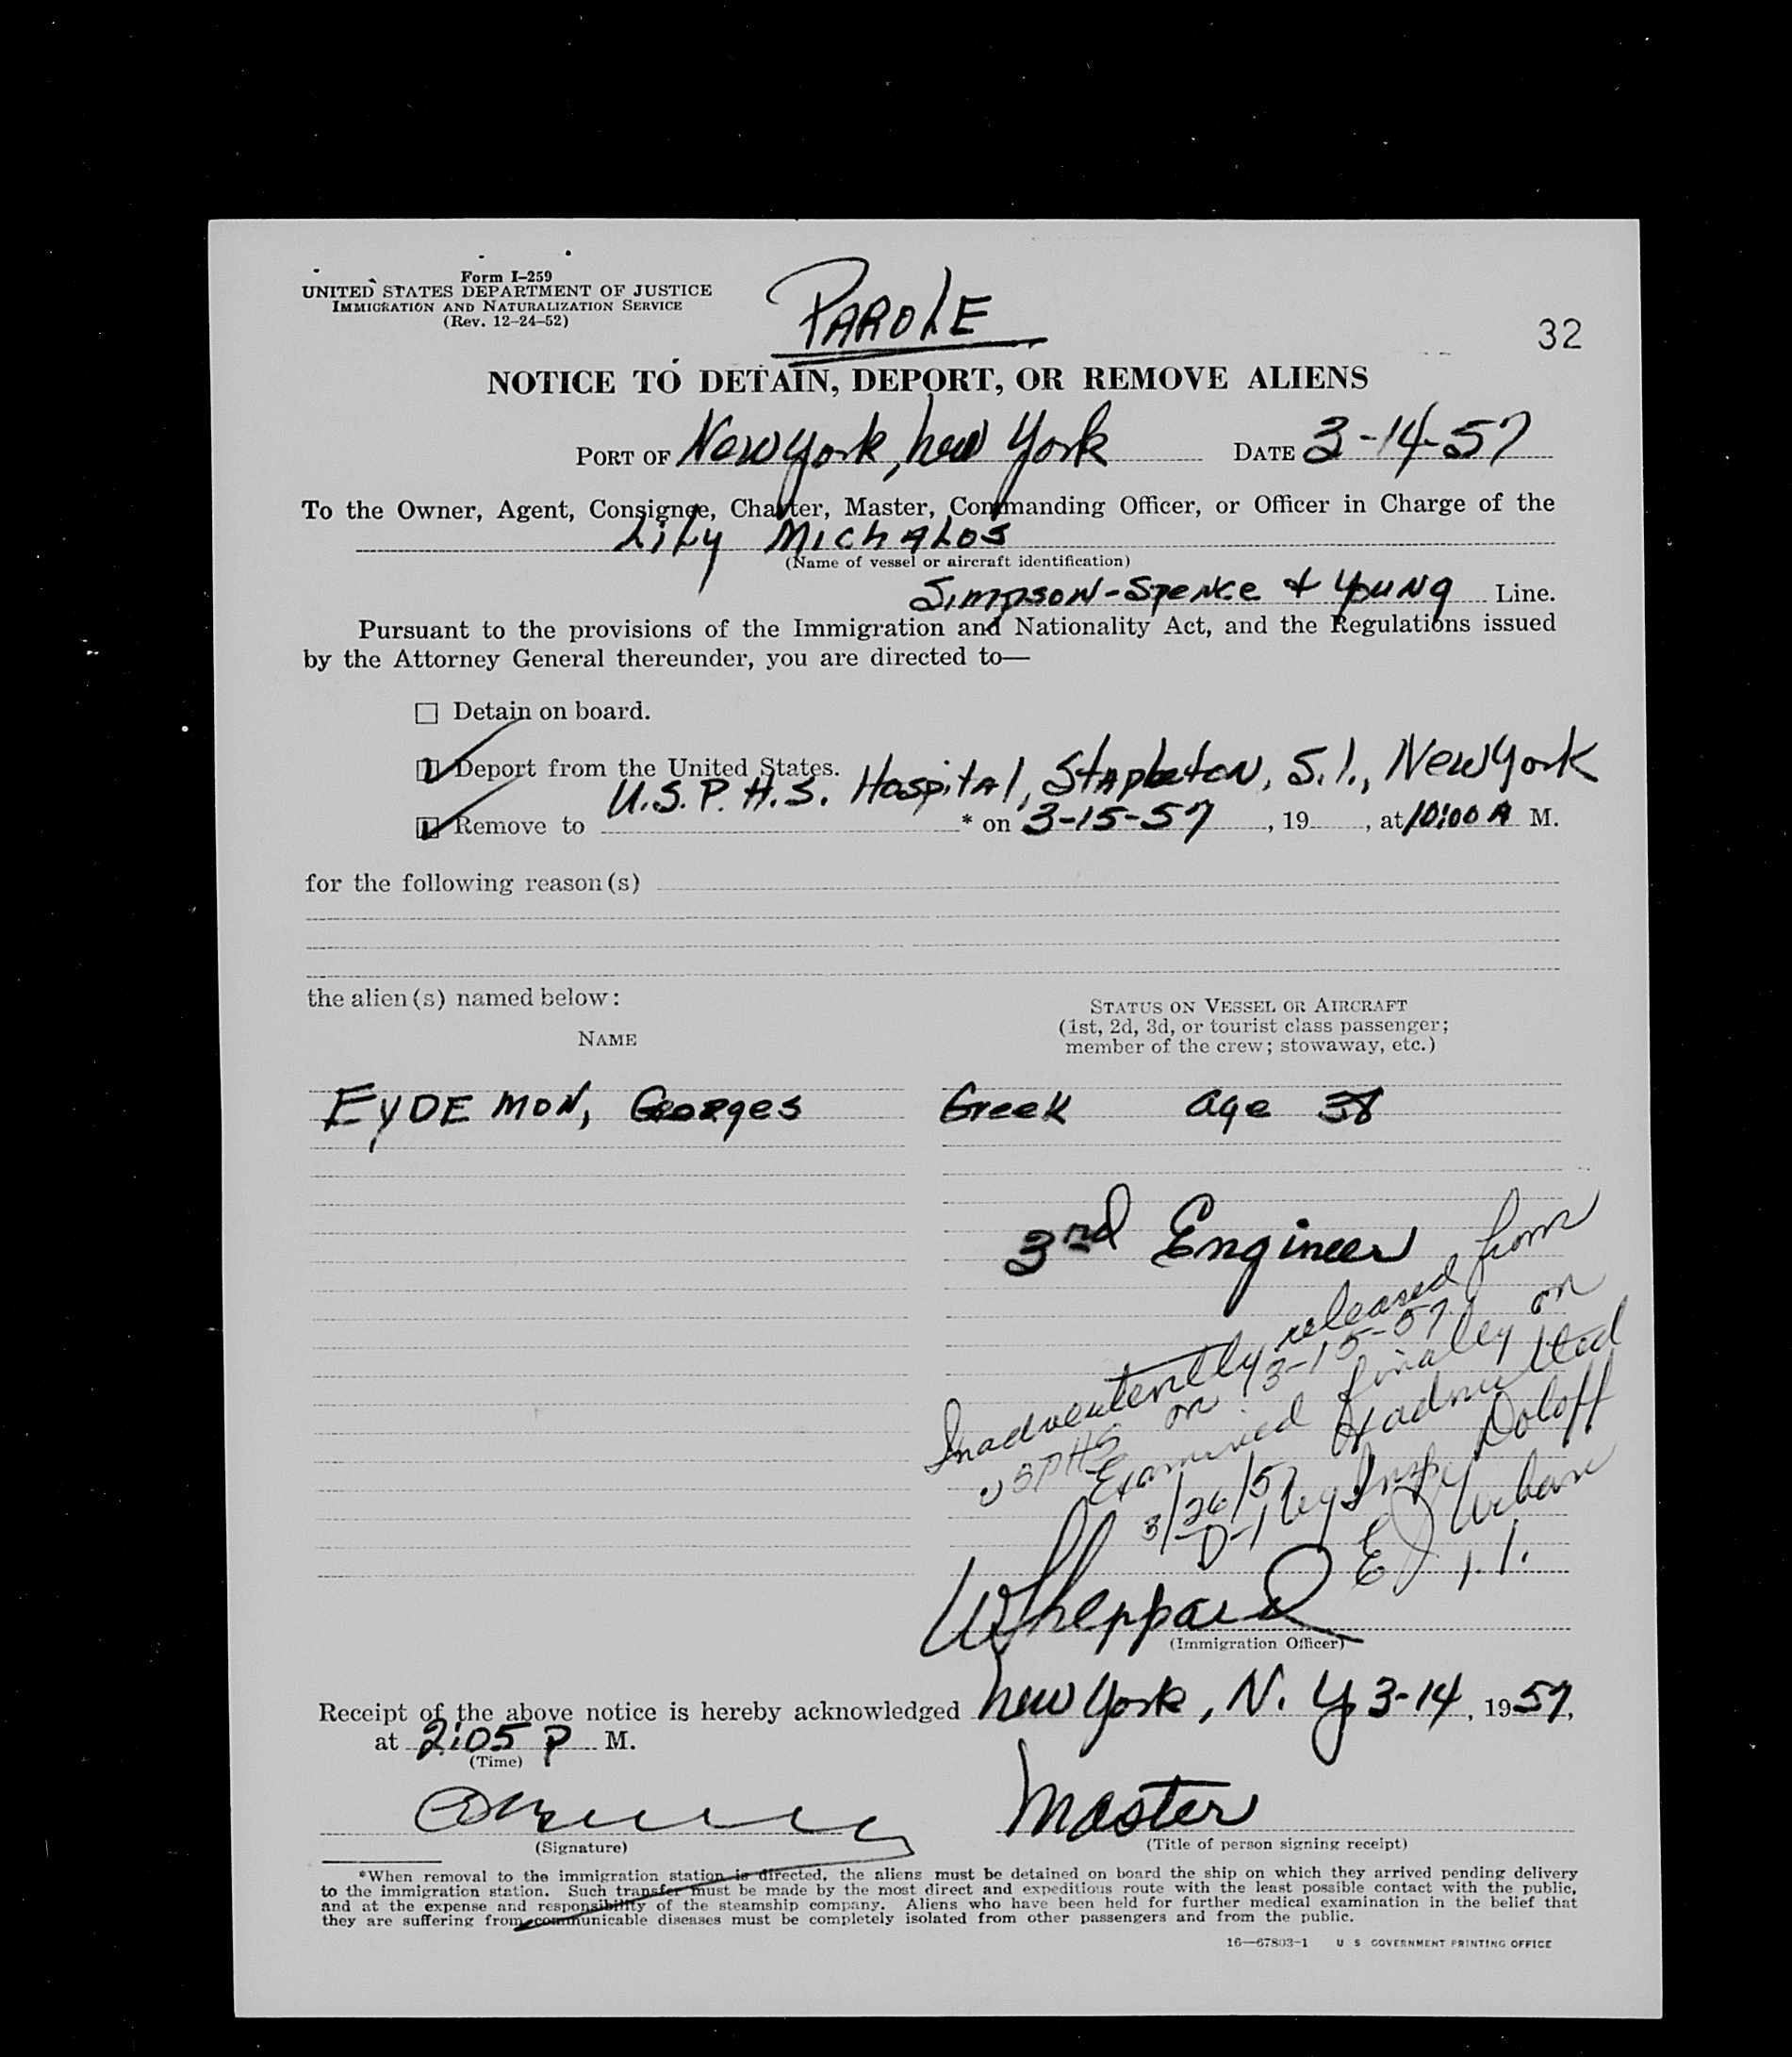 Form I-259
UNITED STATES DEPARTMENT OF JUSTICE
IMMIGRATION AND NATURALIZATION SERVICE
(Rev. 12-24-52)
PAROLE
32
NOTICE TO DETAIN, DEPORT, OR REMOVE ALIENS
PORT OF New York, New York DATE 3-14-57
To the Owner, Agent, Consignee, Charter, Master, Commanding Officer, or Officer in Charge of the
Lily Michalos
(Name of vessel or aircraft identification)
Simpson-Spence & Young Line.
Pursuant to the provisions of the Immigration and Nationality Act, and the Regulations issued
by the Attorney General thereunder, you are directed to—
Detain on board.
Deport from the United States.
U.S.P.H.S. Hospital, Stapleton, S.I., New York
Remove to * on 3-15-57, 19 , at 10:00 A M.
for the following reason(s)
the alien(s) named below:
NAME
STATUS ON VESSEL OR AIRCRAFT
(1st, 2d, 3d, or tourist class passenger;
member of the crew; stowaway, etc.)
EYDEMON, Georges Greek age 38
3rd Engineer
Inadvertently released from
USPHS on 3-15-57
Examined finally on
3/26/57 & admitted
D-1 by Insp Doloff
E J Urban
I.I.
W Sheppard
(Immigration Officer)
Receipt of the above notice is hereby acknowledged New York, N.Y 3-14, 1957,
at 2:05 P M.
(Time)
Master
(Signature) (Title of person signing receipt)
*When removal to the immigration station is directed, the aliens must be detained on board the ship on which they arrived pending delivery
to the immigration station. Such transfer must be made by the most direct and expeditious route with the least possible contact with the public,
and at the expense and responsibility of the steamship company. Aliens who have been held for further medical examination in the belief that
they are suffering from communicable diseases must be completely isolated from other passengers and from the public.
16—67803-1 U S GOVERNMENT PRINTING OFFICE